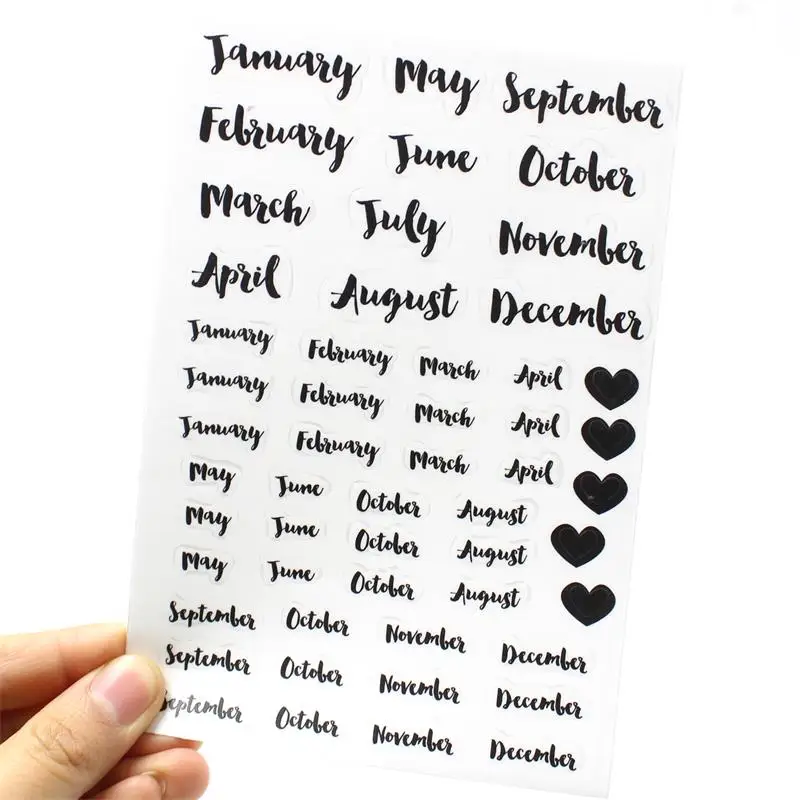 January May September
February June October
March July November
April August December
January February March April
January February March April
January February March April
May June October August
May June October August
May June October August
September October November December
September October November December
September October November December